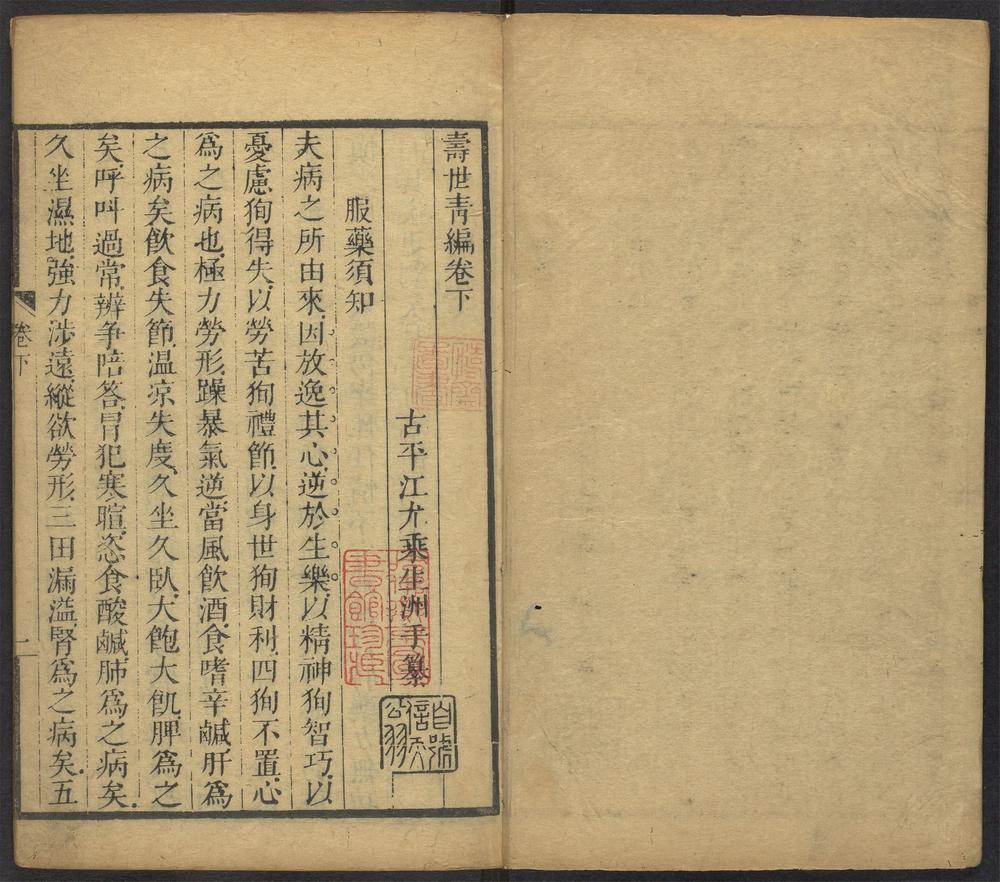 壽世青編卷下
古平江尤乘生洲手纂
服藥須知
夫病之所由來因放逸其心逆於生樂以精神狥智巧以
憂慮狥得失以勞苦狥禮節以身世狥財利四狥不置心
爲之病也極力勞形躁暴氣逆當風飲酒食嗜辛鹹肝爲
之病矣飲食失節温凉失度久坐久臥大飽大飢脾爲之
矣呼叫過常辨争陪答冒犯寒暄恣食酸鹹肺爲之病矣
久坐濕地強力涉遠縱欲勞形三田漏溢腎爲之病矣五
卷下
一
自號信天公羽